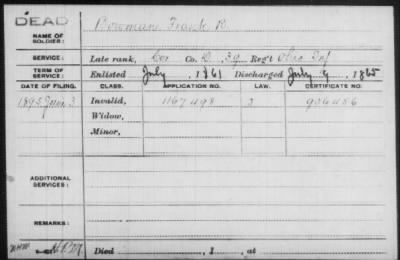 DEAD
NAME OF SOLDIER: Bowman Frank B.
SERVICE: Late rank, Cor Co. D. 39 Reg't Ohio Inf
TERM OF SERVICE: Enlisted July, 1861 Discharged July 9, 1865
DATE OF FILING. CLASS. APPLICATION NO. LAW. CERTIFICATE NO.
1895 3 Invalid, 1167498 906486
Widow,
Minor,
ADDITIONAL SERVICES:
REMARKS:
Died , 1 , at